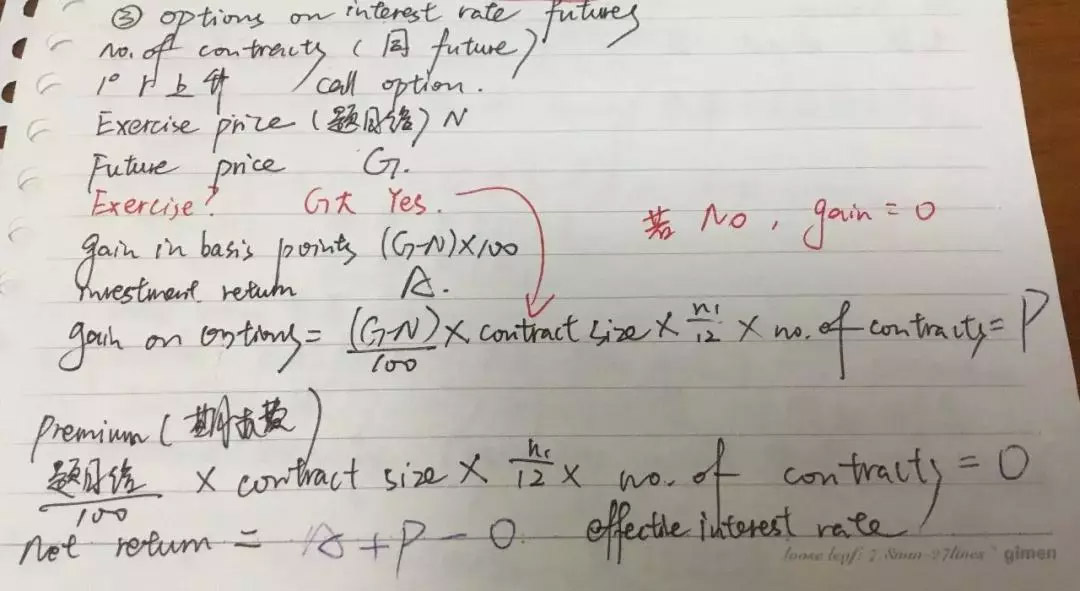 ③ options on interest rate futures
No. of contracts (同 future)
1° 上升 call option.
Exercise price (题目给) N
Future price G.
Exercise? G大 Yes. 若 No, gain = 0
gain in basis points (G-N)×100
investment return A.
gain on options = (G-N)/100 × contract size × n₁/12 × no. of contracts = P
Premium (期权费)
题目给/100 × contract size × n₁/12 × no. of contracts = O
Net return = A + P - O. effective interest rate
loose leaf: 7.8mm-27lines gimen